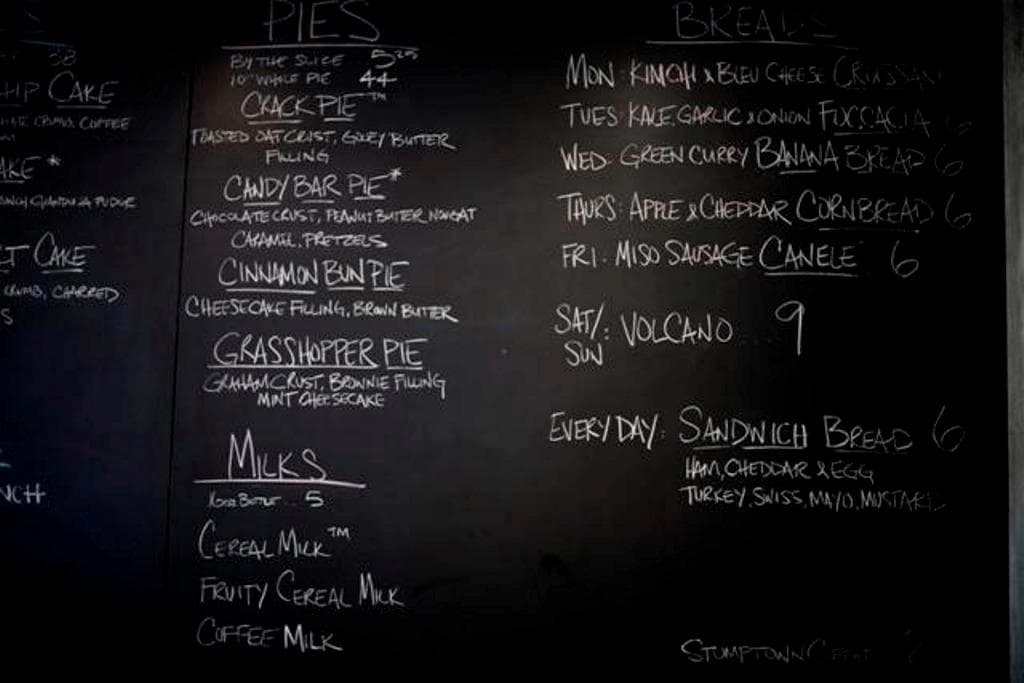 38
CAKE
CRUMB, COFFEE
AKE*
FUDGE
T CAKE
CRUMB, CHARRED
S
NCH
PIES
BY THE SLICE 5.25
10" WHOLE PIE 44
CRACK PIE™
TOASTED OAT CRUST, GOOEY BUTTER
FILLING
CANDY BAR PIE*
CHOCOLATE CRUST, PEANUT BUTTER NOUGAT
CARAMEL, PRETZELS
CINNAMON BUN PIE
CHEESECAKE FILLING, BROWN BUTTER
GRASSHOPPER PIE
GRAHAM CRUST, BROWNIE FILLING
MINT CHEESECAKE
MILKS
BOTTLE ... 5
CEREAL MILK™
FRUITY CEREAL MILK
COFFEE MILK
BREADS
MON: KIMCHI & BLEU CHEESE CROISSAN
TUES KALE, GARLIC & ONION FOCCACIA 6
WED: GREEN CURRY BANANA BREAD 6
THURS: APPLE & CHEDDAR CORNBREAD 6
FRI. MISO SAUSAGE CANELE 6
SAT/: VOLCANO ... 9
SUN
EVERYDAY: SANDWICH BREAD 6
HAM, CHEDDAR & EGG
TURKEY, SWISS, MAYO, MUSTARD
STUMPTOWN